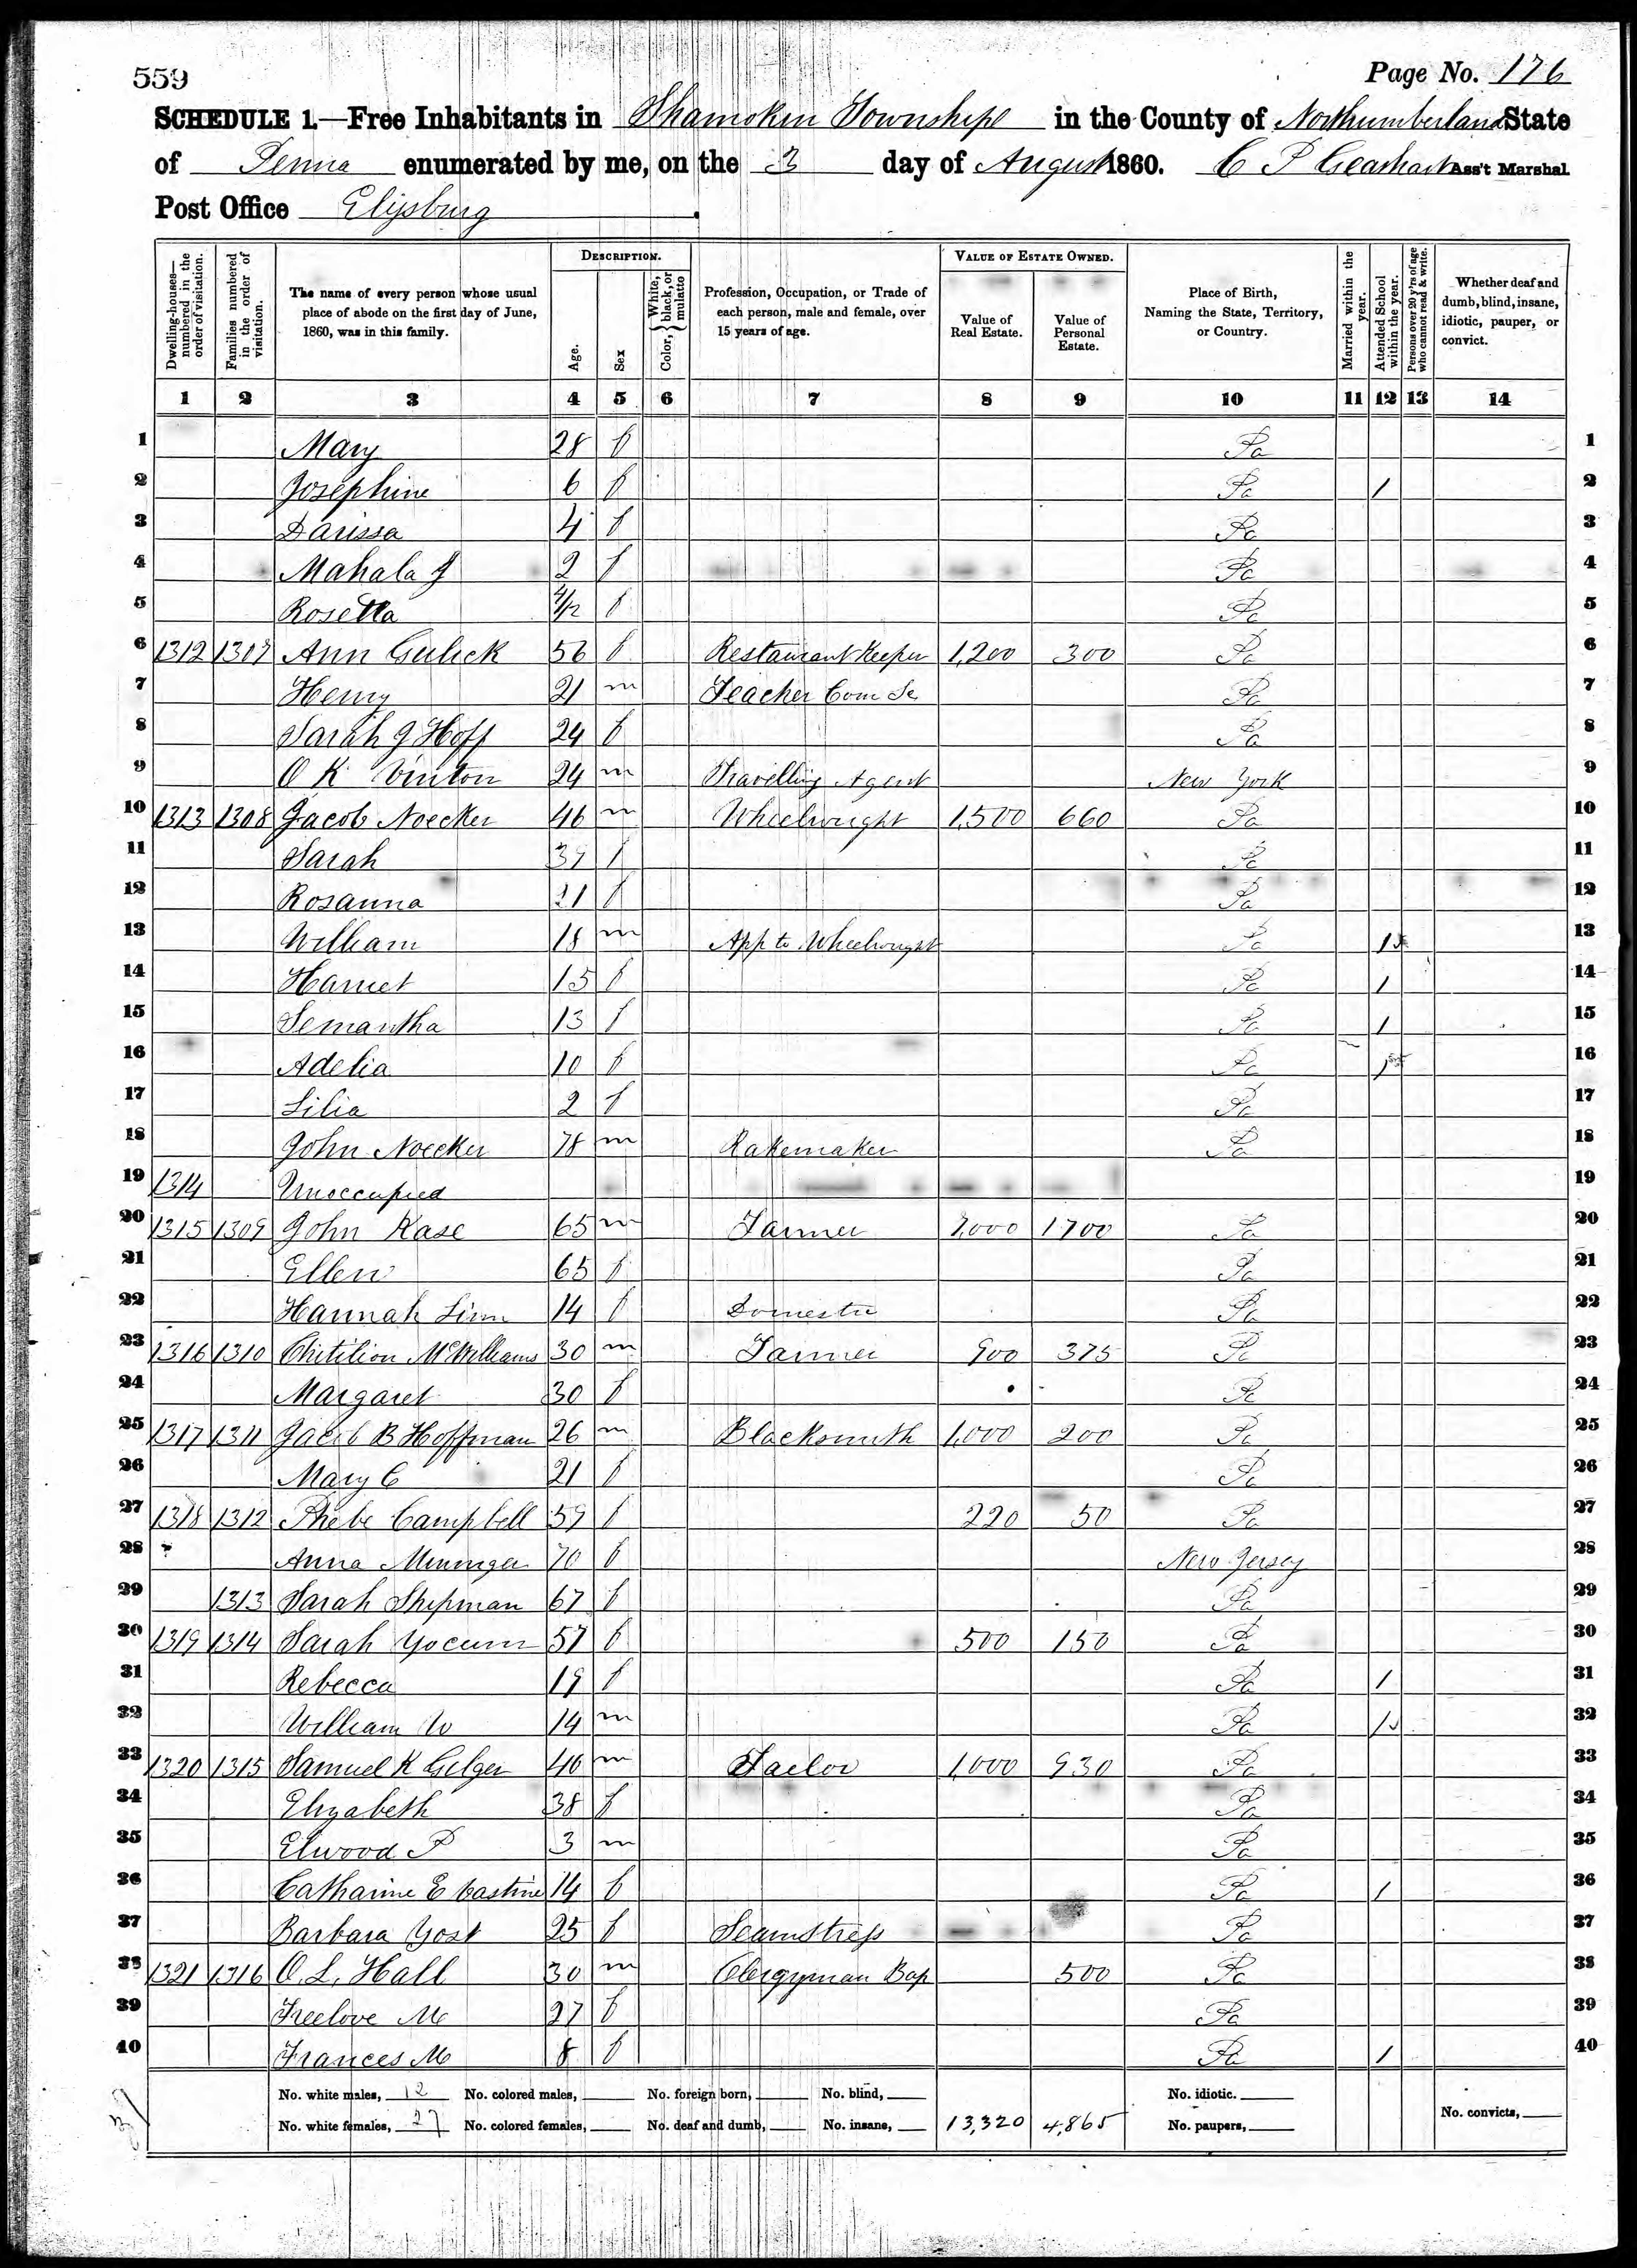 559
Page No. 176
SCHEDULE 1.—Free Inhabitants in Shamokin Township in the County of Northumberland State
of Penna enumerated by me, on the 3 day of August 1860. C P Gearhart Ass't Marshal.
Post Office Elysburg
Dwelling-houses—numbered in the order of visitation.
Families numbered in the order of visitation.
The name of every person whose usual place of abode on the first day of June, 1860, was in this family.
DESCRIPTION.
Age.
Sex
Color, } White, black, or mulatto
Profession, Occupation, or Trade of each person, male and female, over 15 years of age.
VALUE OF ESTATE OWNED.
Value of Real Estate.
Value of Personal Estate.
Place of Birth, Naming the State, Territory, or Country.
Married within the year.
Attended School within the year.
Persons over 20 y'rs of age who cannot read & write.
Whether deaf and dumb, blind, insane, idiotic, pauper, or convict.
1 2 3 4 5 6 7 8 9 10 11 12 13 14
1 Mary 28 f Pa 1
2 Josephine 6 f Pa / 2
3 Darissa 4 f Pa 3
4 Mahala J 2 f Pa 4
5 Rosetta 4/12 f Pa 5
6 1312 1307 Ann Gulick 56 f Restaurant Keeper 1,200 300 Pa 6
7 Henry 21 m Teacher Com Sc 7 Pa
8 Sarah J Hoff 24 f Pa 8
9 O K Vinton 24 m Travelling Agent New York 9
10 1313 1308 Jacob Noecker 46 m Wheelwright 1,500 660 Pa 10
11 Sarah 39 f Pa 11
12 Rosanna 21 f Pa 12
13 William 18 m App to Wheelwright Pa / 13
14 Harriet 15 f Pa / 14
15 Semantha 13 f Pa / 15
16 Adelia 10 f Pa / 16
17 Lilia 2 f Pa 17
18 John Noecker 78 m Rakemaker Pa 18
19 1314 Unoccupied 19
20 1315 1309 John Kase 65 m Farmer 7,000 1700 Pa 20
21 Ellen 65 f Pa 21
22 Hannah Linn 14 f Domestic Pa 22
23 1316 1310 Chitilion McWilliams 30 m Farmer 900 375 Pa 23
24 Margaret 30 f Pa 24
25 1317 1311 Jacob B Hoffman 26 m Blacksmith 1,000 200 Pa 25
26 Mary C 21 f Pa 26
27 1318 1312 Phebe Campbell 59 f 220 50 Pa 27
28 Anna 70 f New Jersey 28
29 1313 Sarah Shipman 67 f Pa 29
30 1319 1314 Sarah Yocum 57 f 500 150 Pa 30
31 Rebecca 19 f Pa / 31
32 William W 14 m Pa / 32
33 1320 1315 Samuel K Gilger 40 m Tailor 1,000 930 Pa 33
34 Elizabeth 38 f Pa 34
35 Elwood P 3 m Pa 35
36 Catharine E Eastine 14 f Pa / 36
37 Barbara Yost 25 f Seamstress Pa 37
38 1321 1316 O. L. Hall 30 m Clergyman Bap 500 Pa 38
39 Freelove M 27 f Pa 39
40 Frances M 8 f Pa / 40
No. white males, 12 No. colored males, No. foreign born, No. blind, No. idiotic.
No. white females, 27 No. colored females, No. deaf and dumb, No. insane, 13,320 4,865 No. paupers, No. convicts,